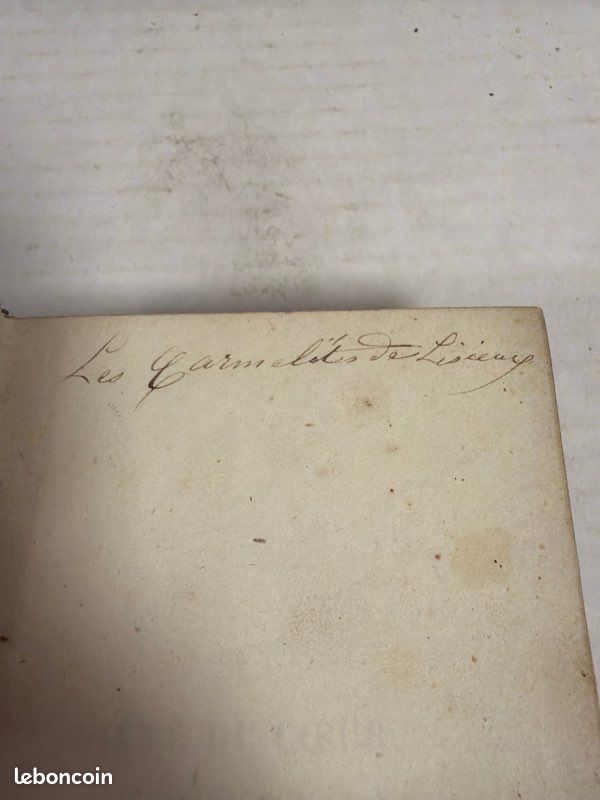 Les Carmelits de Lisieux
leboncoin